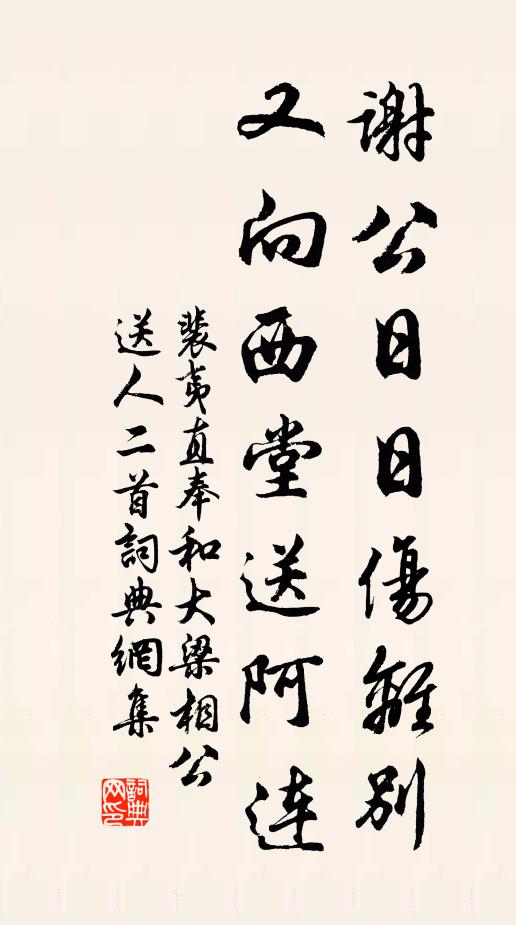 謝公日日傷離別
又向西堂送阿連
裴夷直奉和大梁相公
送人二首詞典網集
詞典
网印